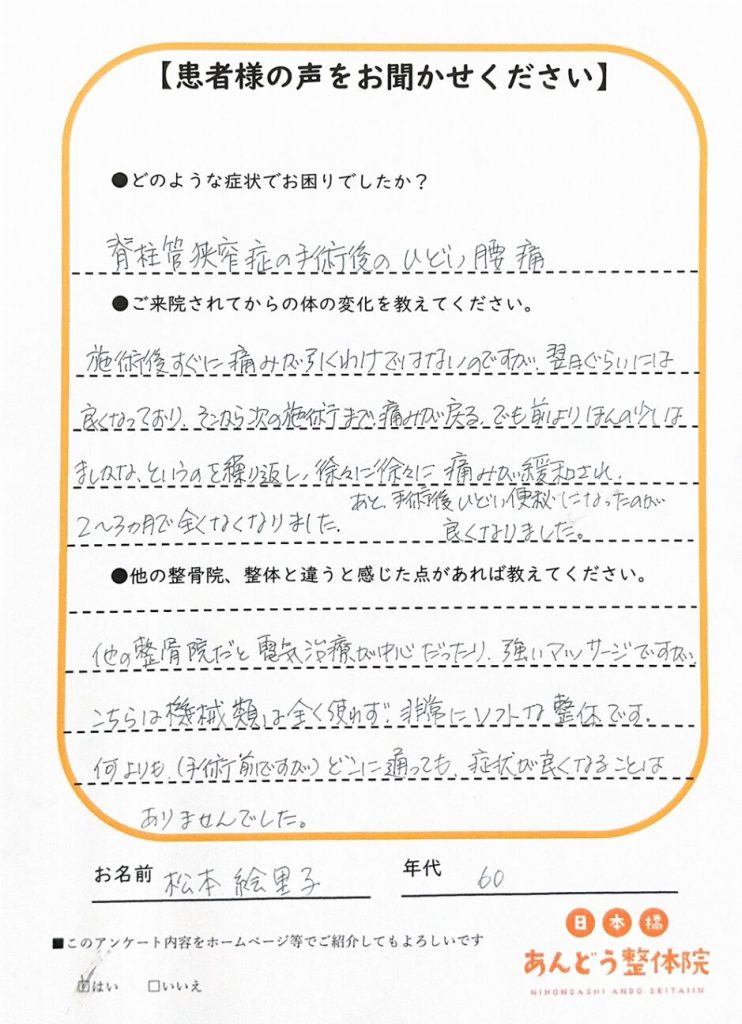 【患者様の声をお聞かせください】
●どのような症状でお困りでしたか？
脊柱管狭窄症の手術後のひどい腰痛
●ご来院されてからの体の変化を教えてください。
施術後すぐに痛みが引くわけではないのですが、翌日ぐらいには
良くなっており、そこから次の施術まで痛みが戻る、でも前よりほんの少しは
ましかな、というのを繰り返し、徐々に徐々に痛みが緩和され、
2〜3ヵ月で全くなくなりました。
あと、手術後ひどい便秘になったのが
良くなりました。
●他の整骨院、整体と違うと感じた点があれば教えてください。
他の整骨院だと電気治療が中心だったり、強いマッサージですが、
こちらは機械類は全く使わず、非常にソフトな整体です。
何よりも、（手術前ですが）どこに通っても、症状が良くなることは
ありませんでした。
お名前 松本 絵里子 年代 60
■このアンケート内容をホームページ等でご紹介してもよろしいです
☑はい □いいえ
日本橋
あんどう整体院
NIHONBASHI ANDO SEITAIIN